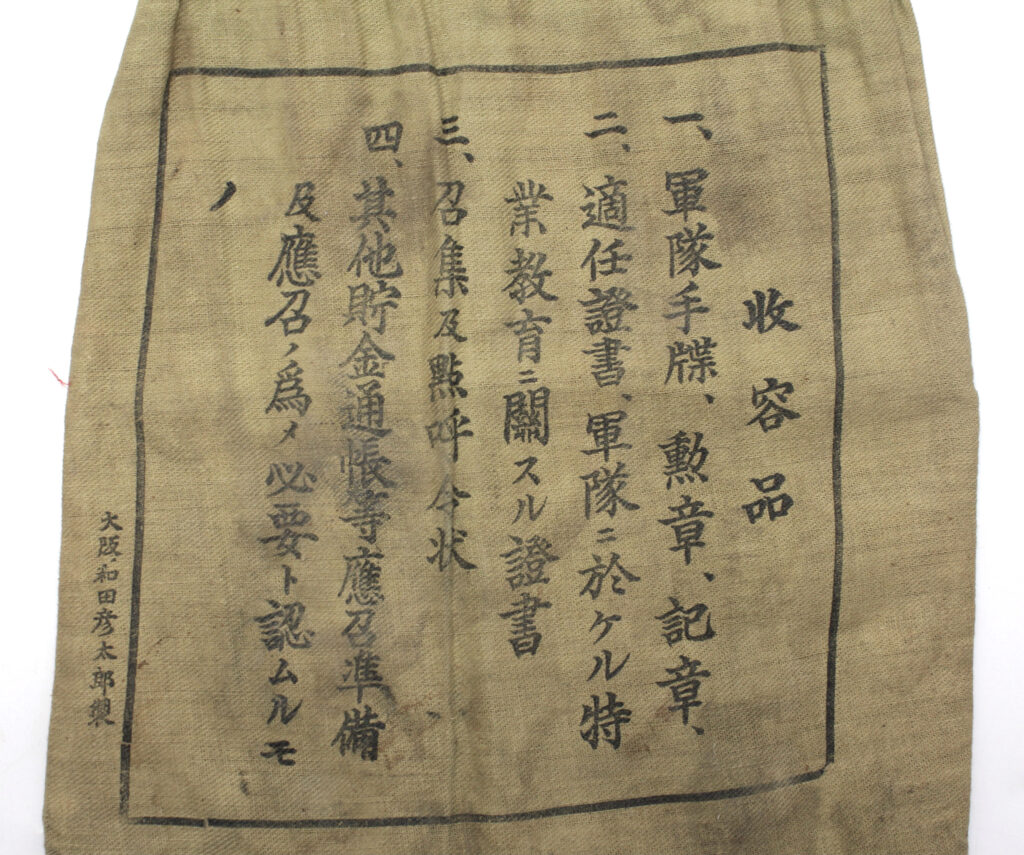 收容品
一、軍隊手牒、勲章、記章、
二、適任證書、軍隊ニ於ケル特
業教育ニ關スル證書
三、召集及點呼令状
四、其他貯金通帳等應召準備
及應召ノ爲メ必要ト認ムルモ
ノ
大阪、和田彦太郎製